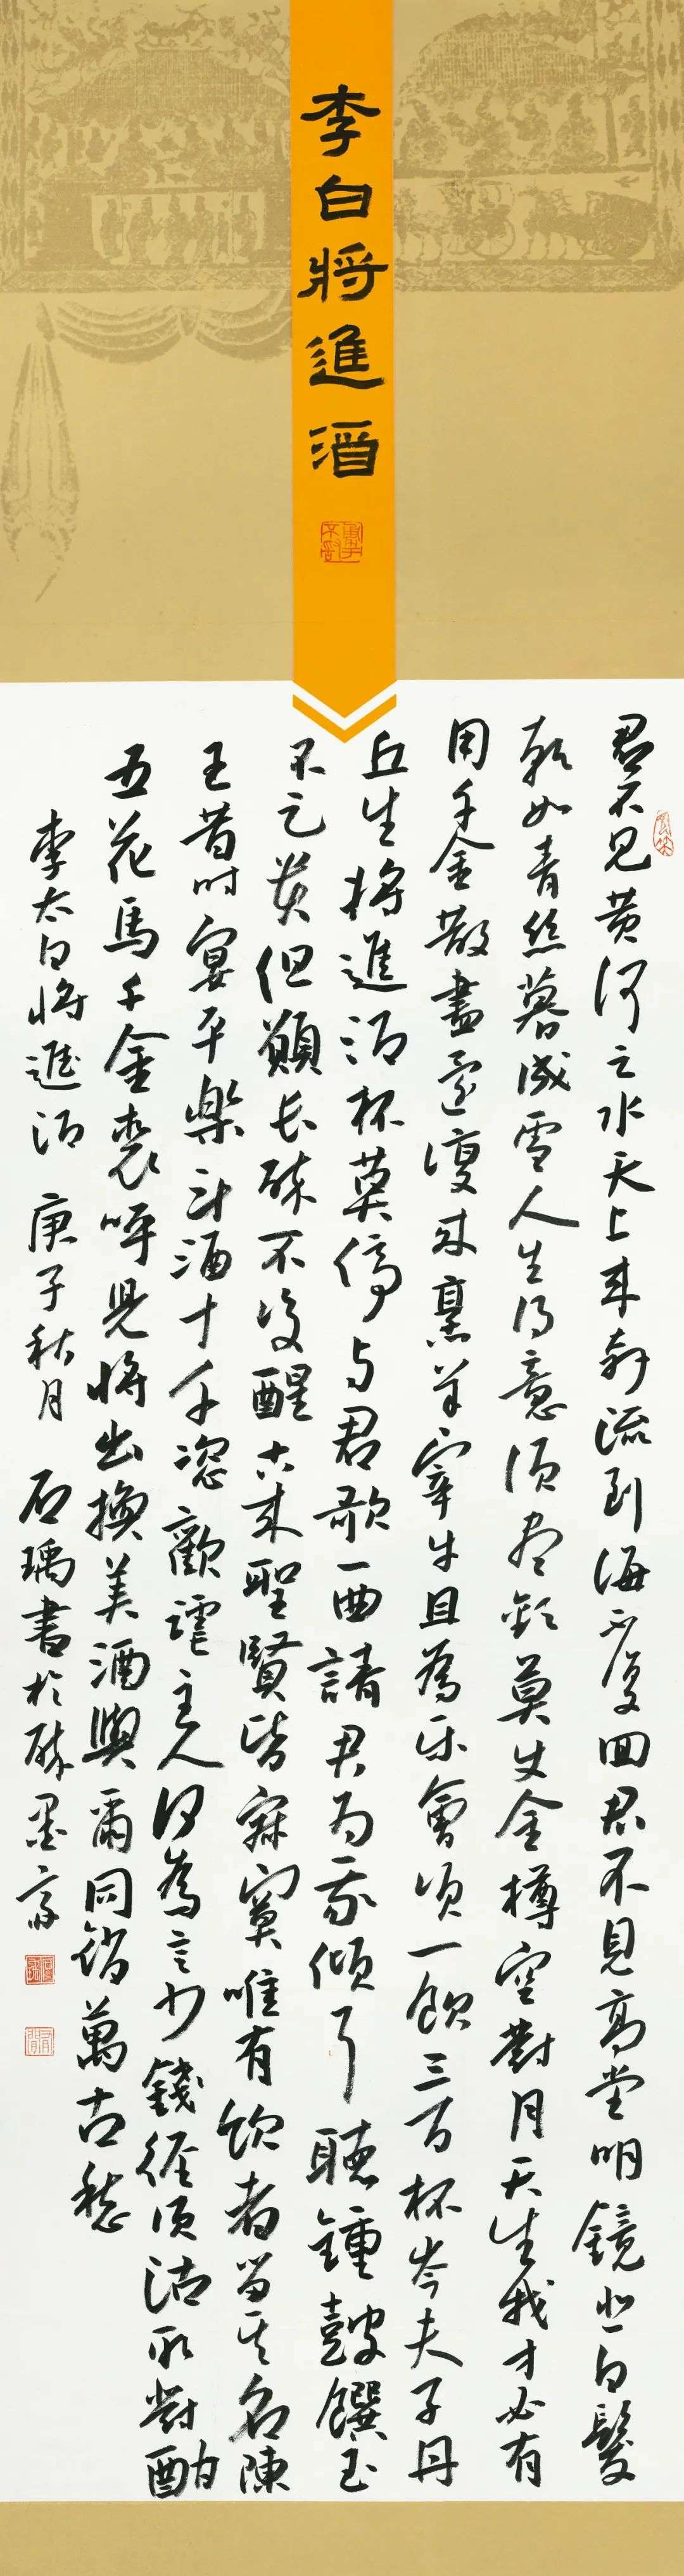 李白將進酒
君不见黄河之水天上来奔流到海不复回君不見高堂明鏡悲白髮
朝如青丝暮成雪人生得意须尽欢莫使金樽空對月天生我才必有
用千金散盡还復来烹羊宰牛且為乐會须一饮三百杯岑夫子丹
丘生将進酒杯莫停与君歌一曲請君为我傾耳聴鍾鼓饌玉
不足贵但願长醉不復醒古来聖賢皆寂寞唯有饮者留其名陳
王昔时宴平樂斗酒十千恣歡謔主人何為言少錢径须沽取對酌
五花馬千金裘呼児将出換美酒與爾同销萬古愁
李太白将進酒 庚子秋月 石瑀書於醉墨斋